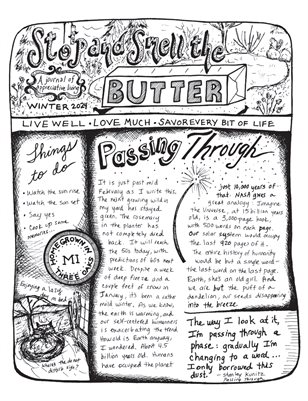 Stop and Smell the
BUTTER
A journal of
appreciative living
WINTER 2024
LIVE WELL • LOVE MUCH • SAVOR EVERY BIT OF LIFE
Things
to do
• Watch the sun rise
• Watch the sun set
• Say yes
• Cook up some
memories...
HOME GROWN IN
MI
Passing Through
It is just past mid
February as I write this.
The
yard has stayed
green. The rosemary
in the planter has
not completely died
back. It will reach
the 50s today, with
predictions of 60s next
week. Despite a week
of deep freeze and a
couple feet of snow in
January, it's been a rather
mild winter. As we know,
the earth is warming, and
our self-centered humanness
is exacerbating the trend.
How old is Earth anyway,
I wondered. About 4.5
billion years old. Humans
have occupied the planet
just 10,000 years of
that. NASA gives a
great analogy. Imagine
the Universe, at 15 billion years
old, is a 5,000-page book,
with 500 words on each page.
Our solar system would occupy
the last 920 pages of it.
The entire history of humanity
would be but a single word—
the last word on the last page.
Earth, she's an old girl. And
we are but the puff of a
dandelion, our seeds disappearing
into the breeze.
The way I look at it,
I'm passing through a
phase: gradually I'm
changing to a word...
I only borrowed this
dust. — Stanley Kunitz,
Passing Through